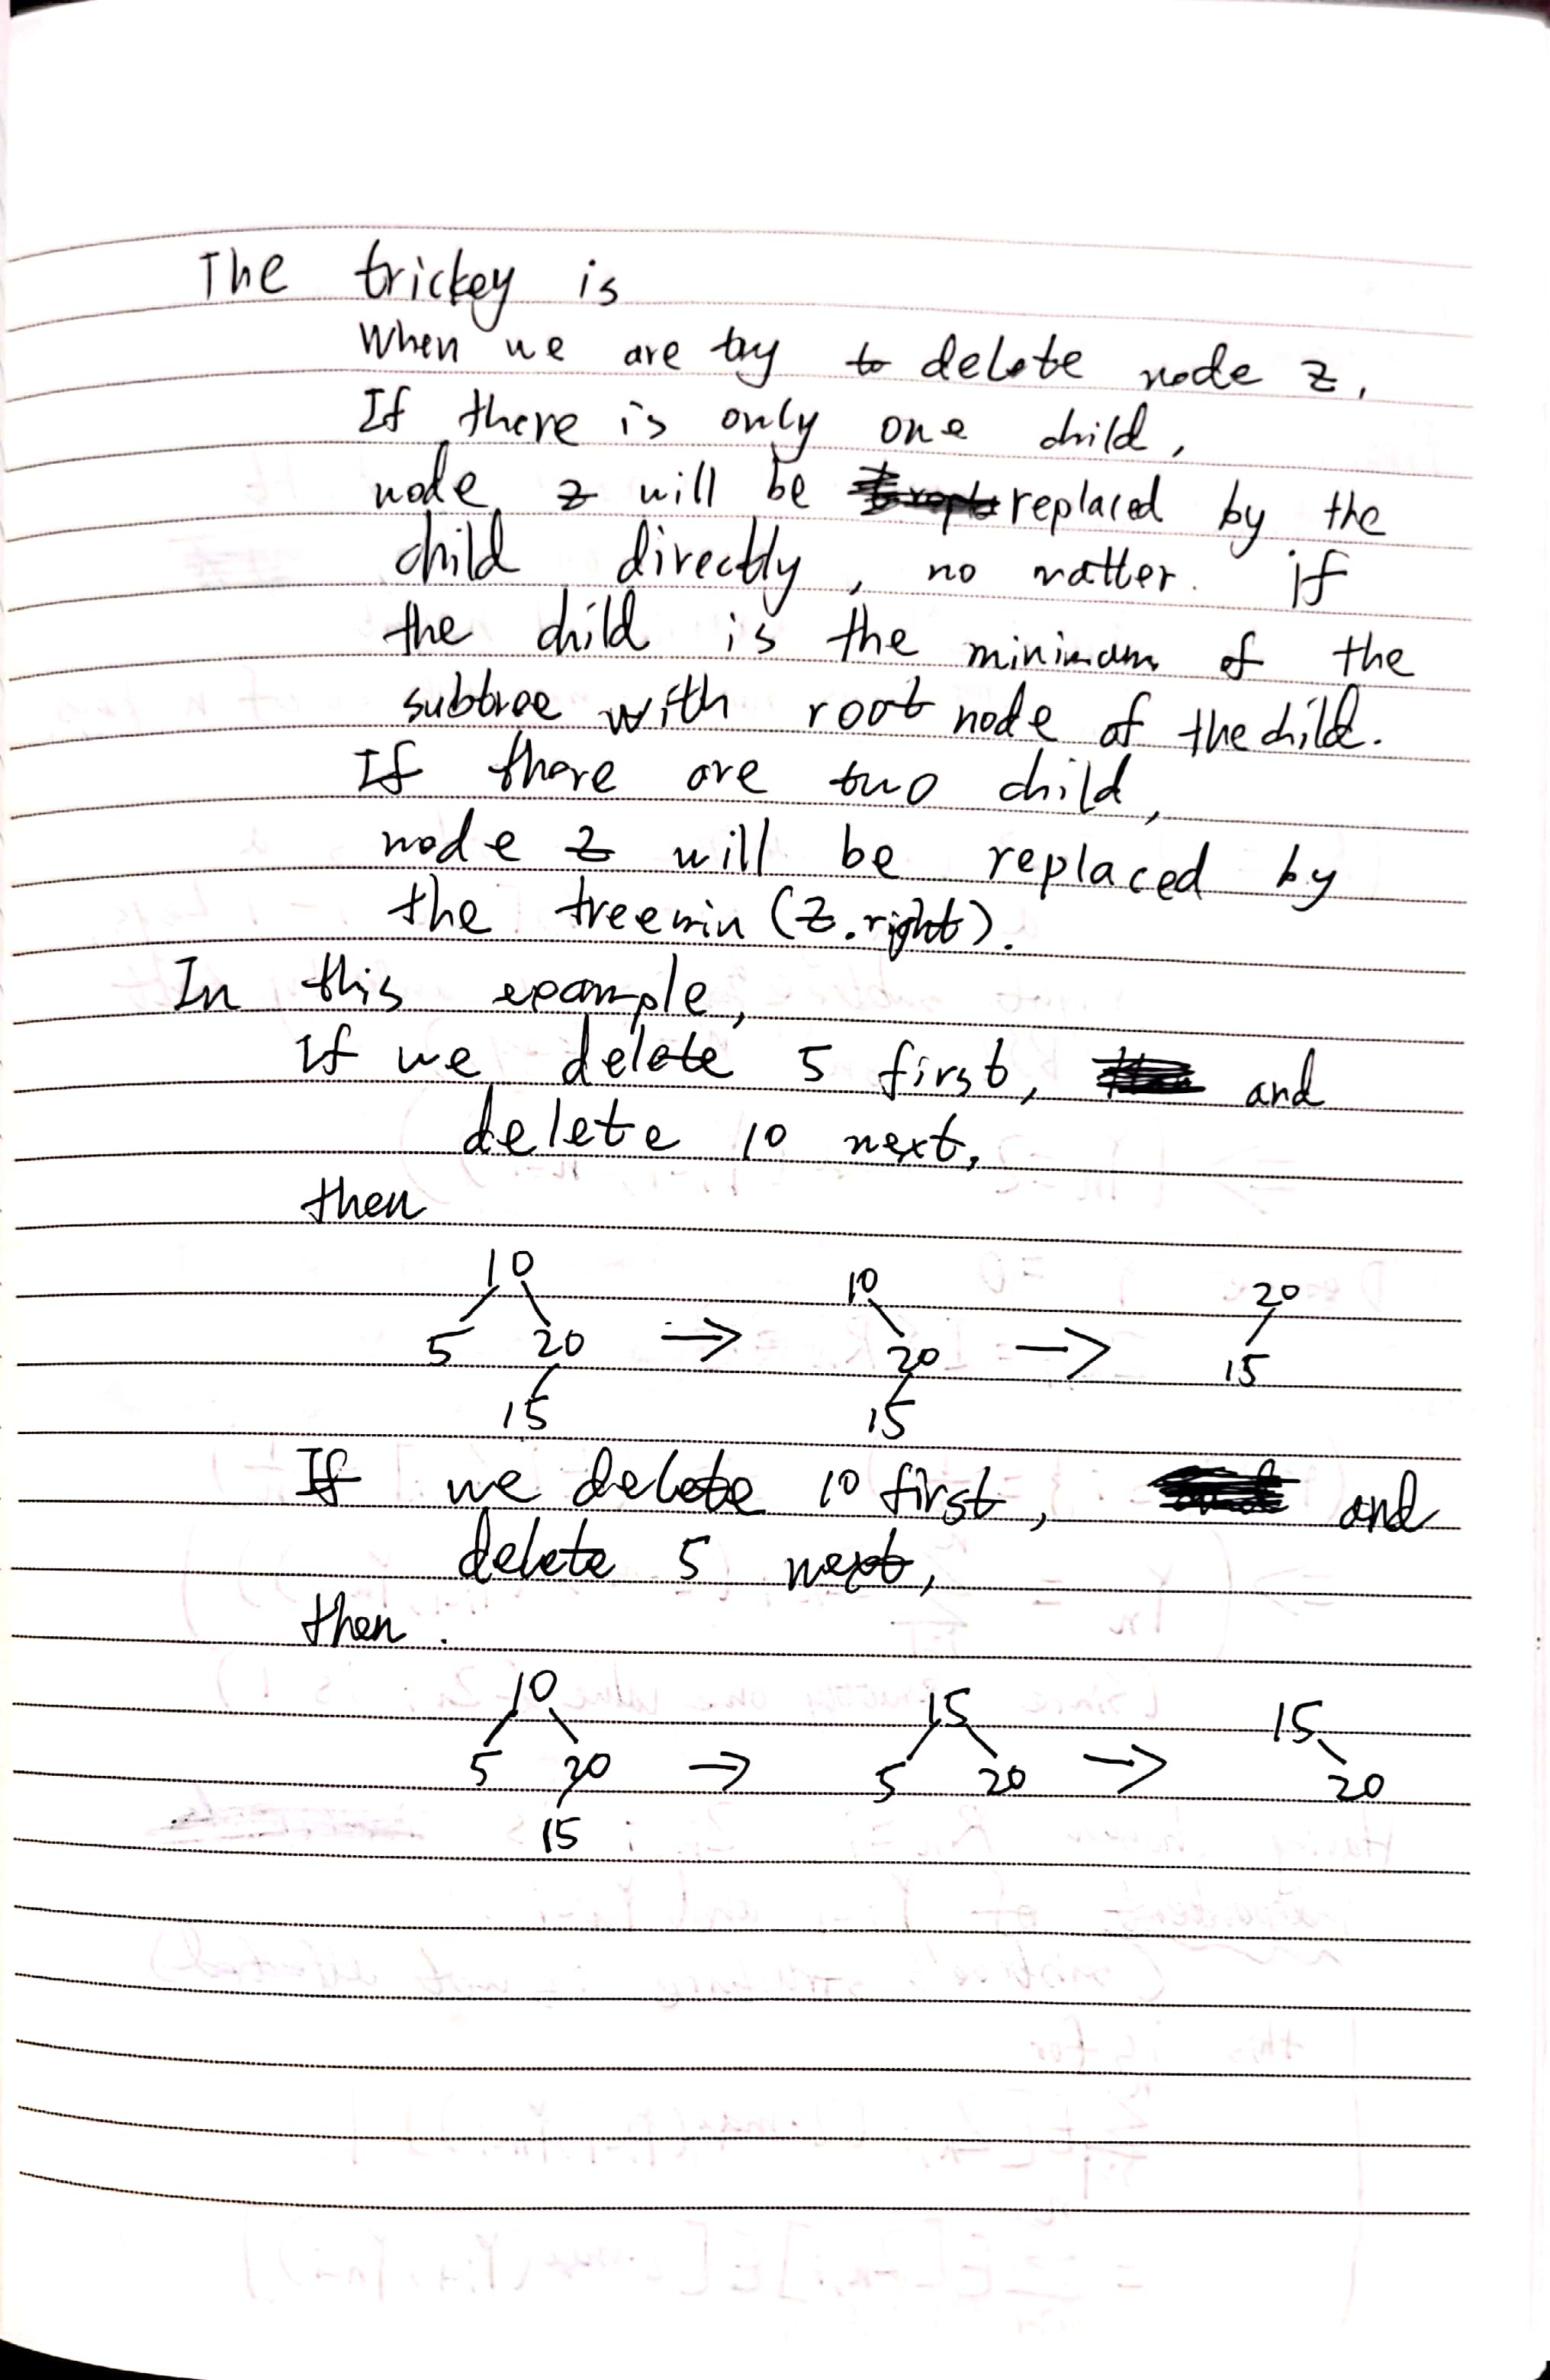 The trickey is
When we are try to delete node z,
If there is only one child,
node z will be replaced by the
child directly, no matter. if
the child is the minimum of the
subtree with root node of the child.
If there are two child,
node z will be replaced by
the treemin (z.right).
In this example,
If we delete 5 first, and
delete 10 next,
then
10 10 20
5 20 => 20 => 15
15 15
If we delete 10 first, and
delete 5 next,
then.
10 15 15
5 20 => 5 20 => 20
15